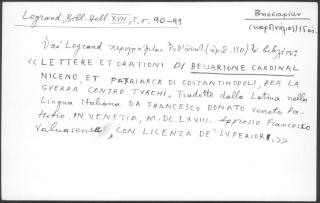 Legrand, Bibl. Hell. XVII, 5, σ. 90-91
Βησσαρίων
15 αι.
Legrand περιγράφει (ἀριθ. 130) τὸ βιβλίον:
« LETTERE ET ORATIONI DI BEUARIONE CARDINAL
NICENO, ET PATRIARCA DI COSTANTINOPOLI, PER LA
GUERRA CONTRO TVRCHI, Tradotte dalla Latina nella
Lingua Italiana DA FRANCESCO DONATO Veneto Pa-
tritio, IN VENETIA, M.DC.LXVIII. Appresso Francesco
Valuasense, CON LICENZA DE' SUPERIORI.»